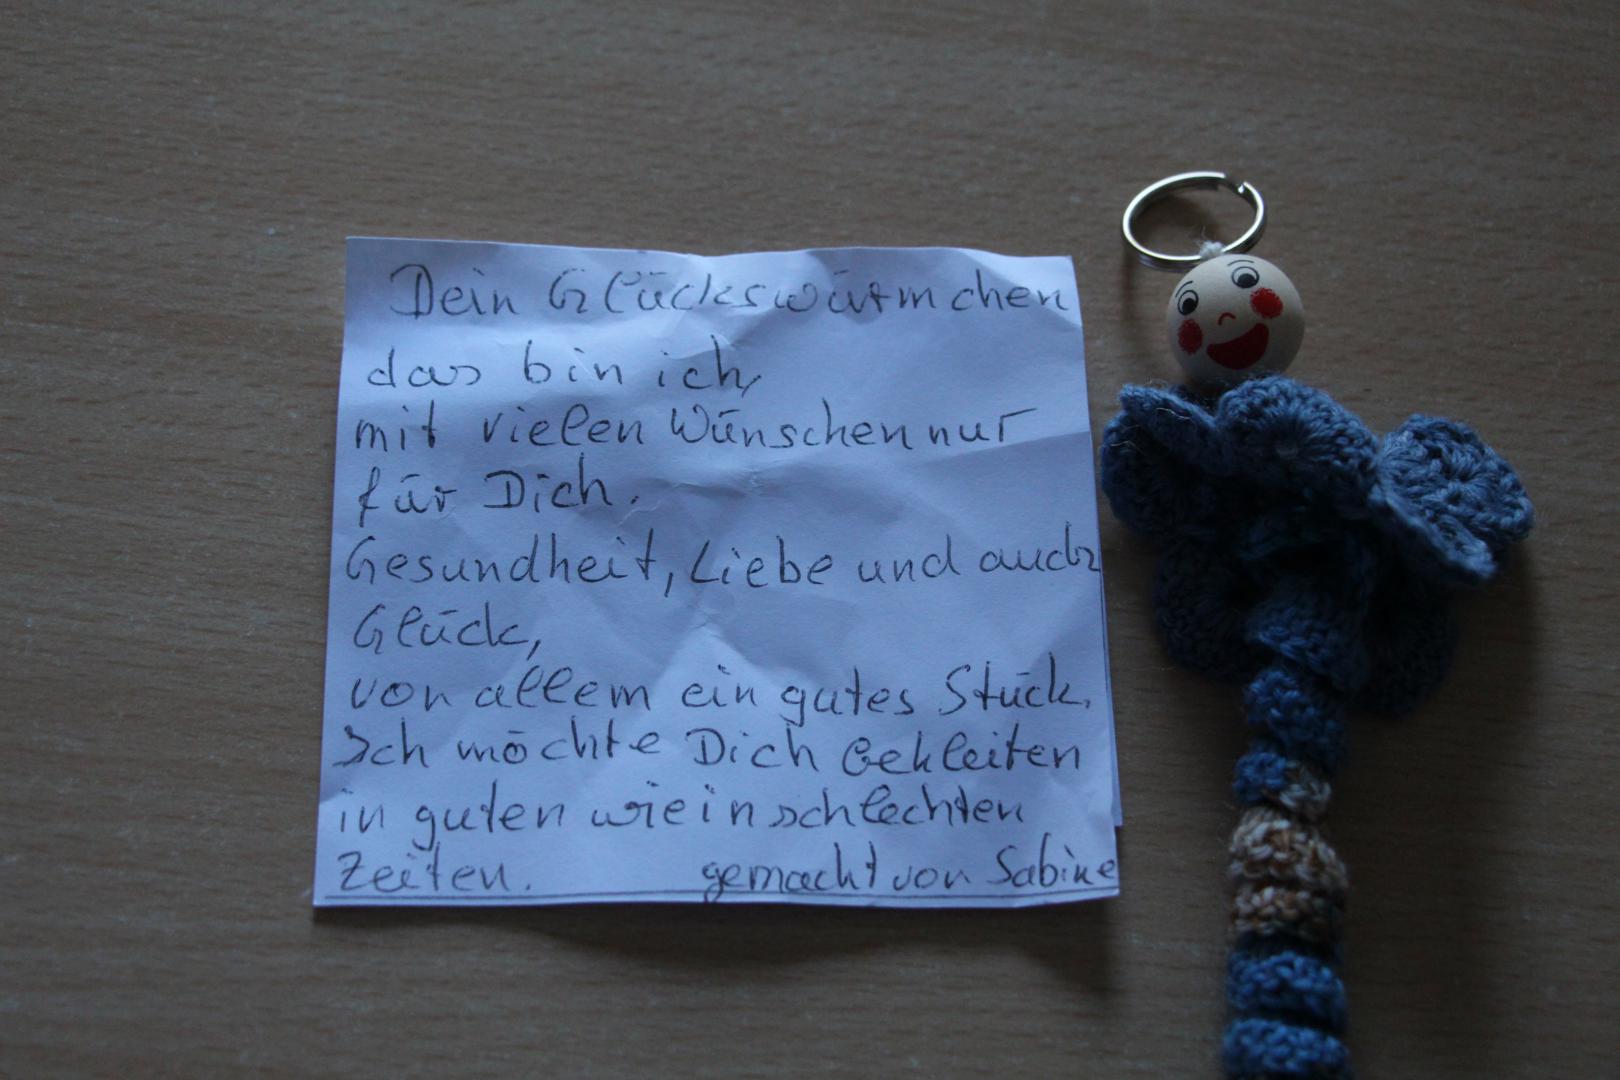 Dein Glückswürmchen
das bin ich,
mit vielen Wünschen nur
für Dich.
Gesundheit, Liebe und auch
Glück,
von allem ein gutes Stück.
Ich möchte Dich bekleiten
in guten wie in schlechten
Zeiten. gemacht von Sabine